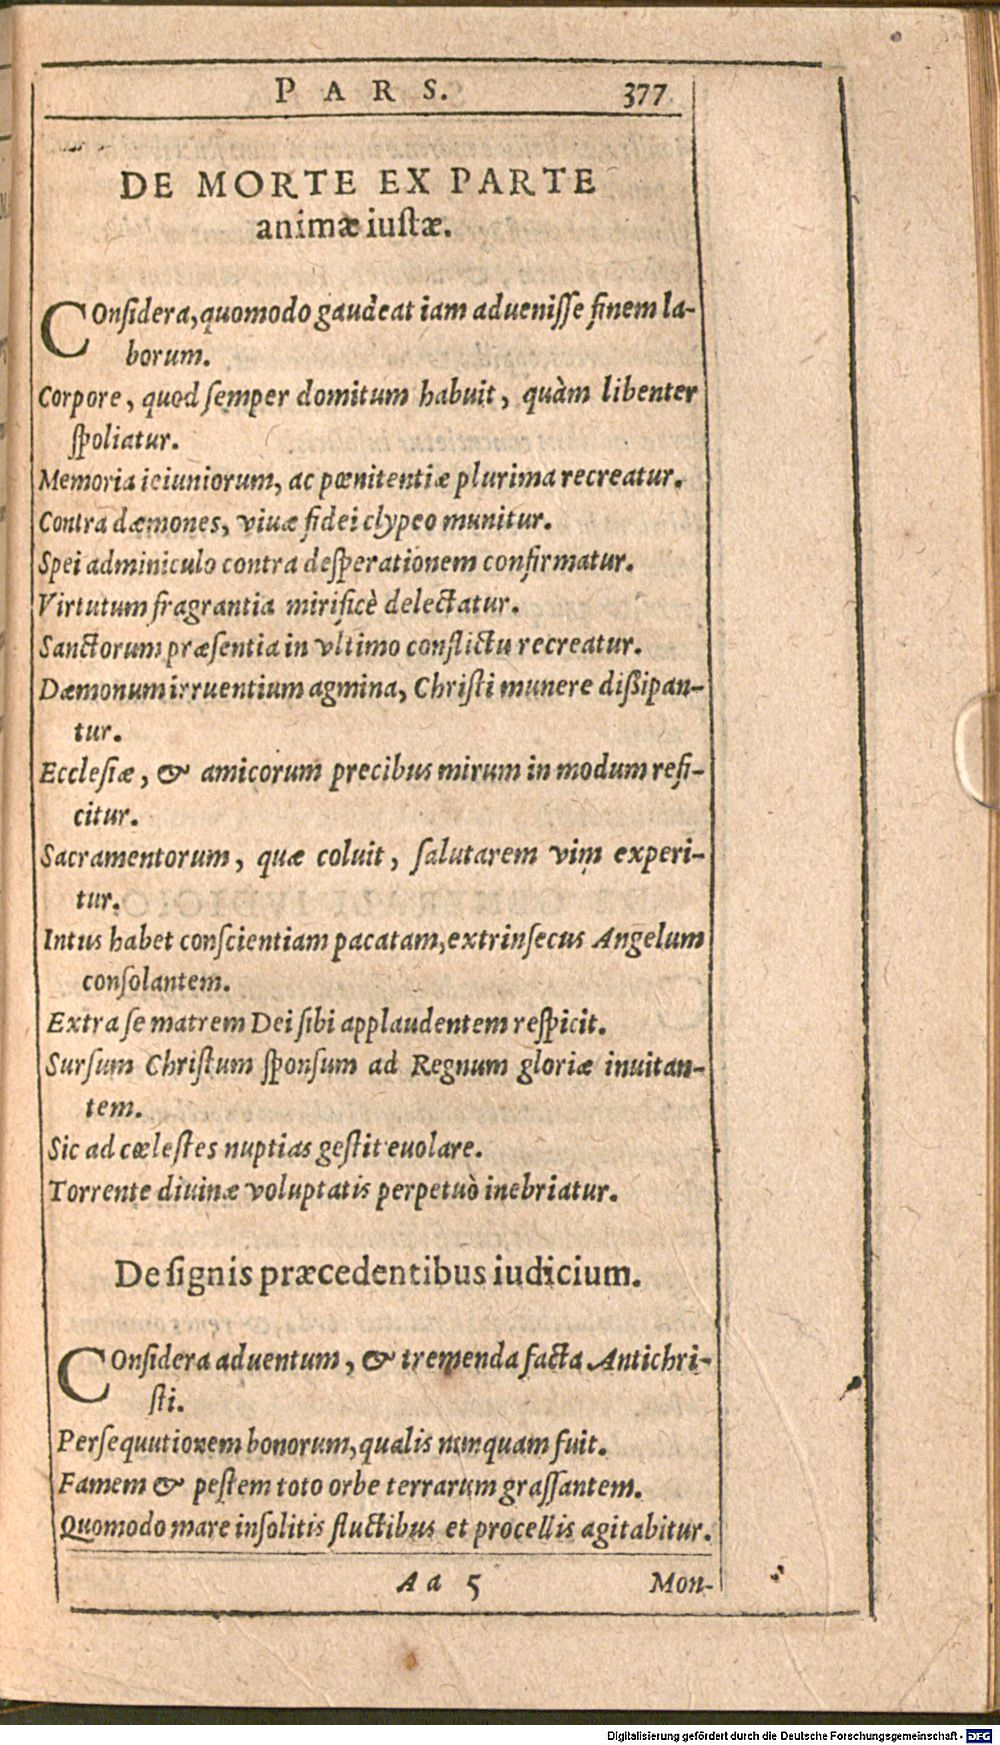 PARS. 377
DE MORTE EX PARTE
animæ iustæ.
COnsidera, quomodo gaudeat iam aduenisse finem la-
borum.
Corpore, quod semper domitum habuit, quàm libenter
spoliatur.
Memoria ieiuniorum, ac pœnitentiæ plurima recreatur.
Contra dæmones, viuæ fidei clypeo munitur.
Spei adminiculo contra desperationem confirmatur.
Virtutum fragrantia mirificè delectatur.
Sanctorum præsentia in vltimo conflictu recreatur.
Dæmonum irruentium agmina, Christi munere dißipan-
tur.
Ecclesiæ, & amicorum precibus mirum in modum refi-
citur.
Sacramentorum, quæ coluit, salutarem vim experi-
tur.
Intus habet conscientiam pacatam, extrinsecus Angelum
consolantem.
Extra se matrem Dei sibi applaudentem respicit.
Sursum Christum sponsum ad Regnum gloriæ inuitan-
tem.
Sic ad cœlestes nuptias gestit euolare.
Torrente diuinæ voluptatis perpetuò inebriatur.
De signis præcedentibus iudicium.
COnsidera aduentum, & tremenda facta Antichri-
sti.
Persequutionem bonorum, qualis nunquam fuit.
Famem & pestem toto orbe terrarum grassantem.
Quomodo mare insolitis fluctibus et procellis agitabitur.
Aa 5 Mon-
Digitalisierung gefördert durch die Deutsche Forschungsgemeinschaft - DFG